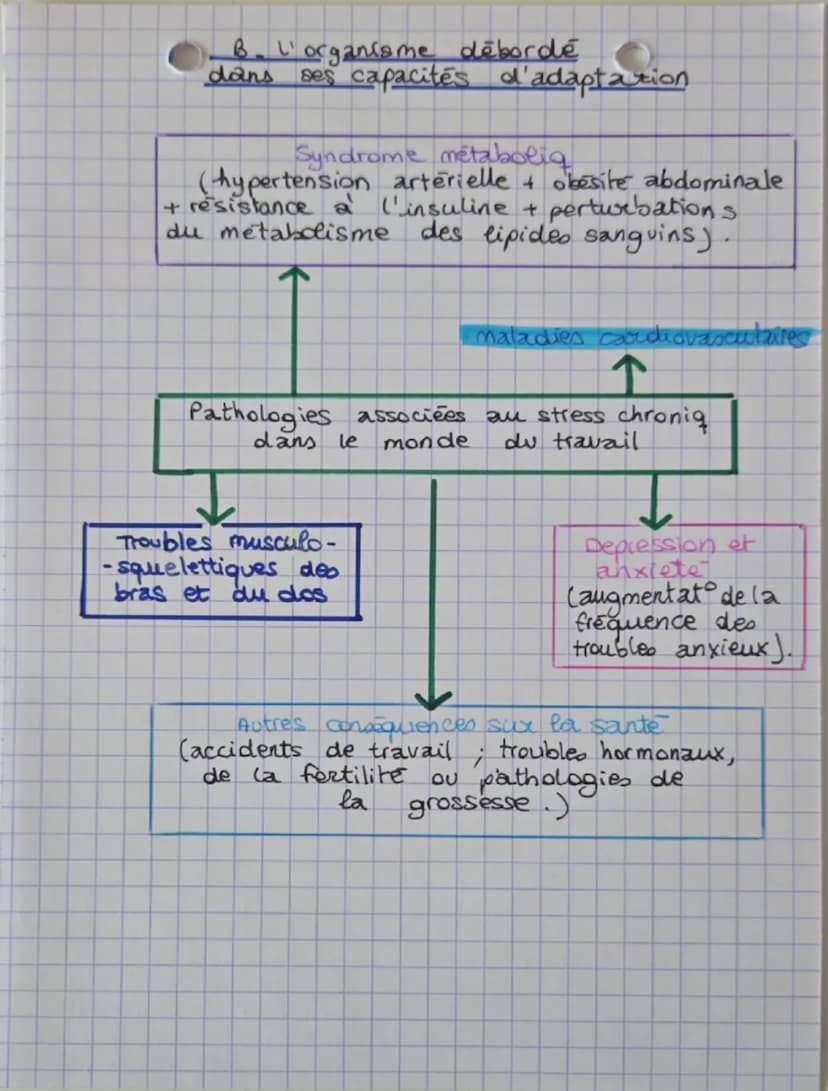 B. L'organisme débordé
dans ses capacités d'adaptation
Syndrome métaboliq
(hypertension artérielle + obésité abdominale
+ résistance à l'insuline + perturbations
du métabolisme des lipides sanguins).
Maladies cardiovasculaires
Pathologies associées au stress chroniq
dans le monde du travail
Troubles musculo-
-squelettiques des
bras et du dos
Dépression et
anxiété
(augmentat° de la
fréquence des
troubles anxieux).
Autres conséquences sur la santé
(accidents de travail ; troubles hormonaux,
de la fertilité ou pathologies de
la grossesse.)